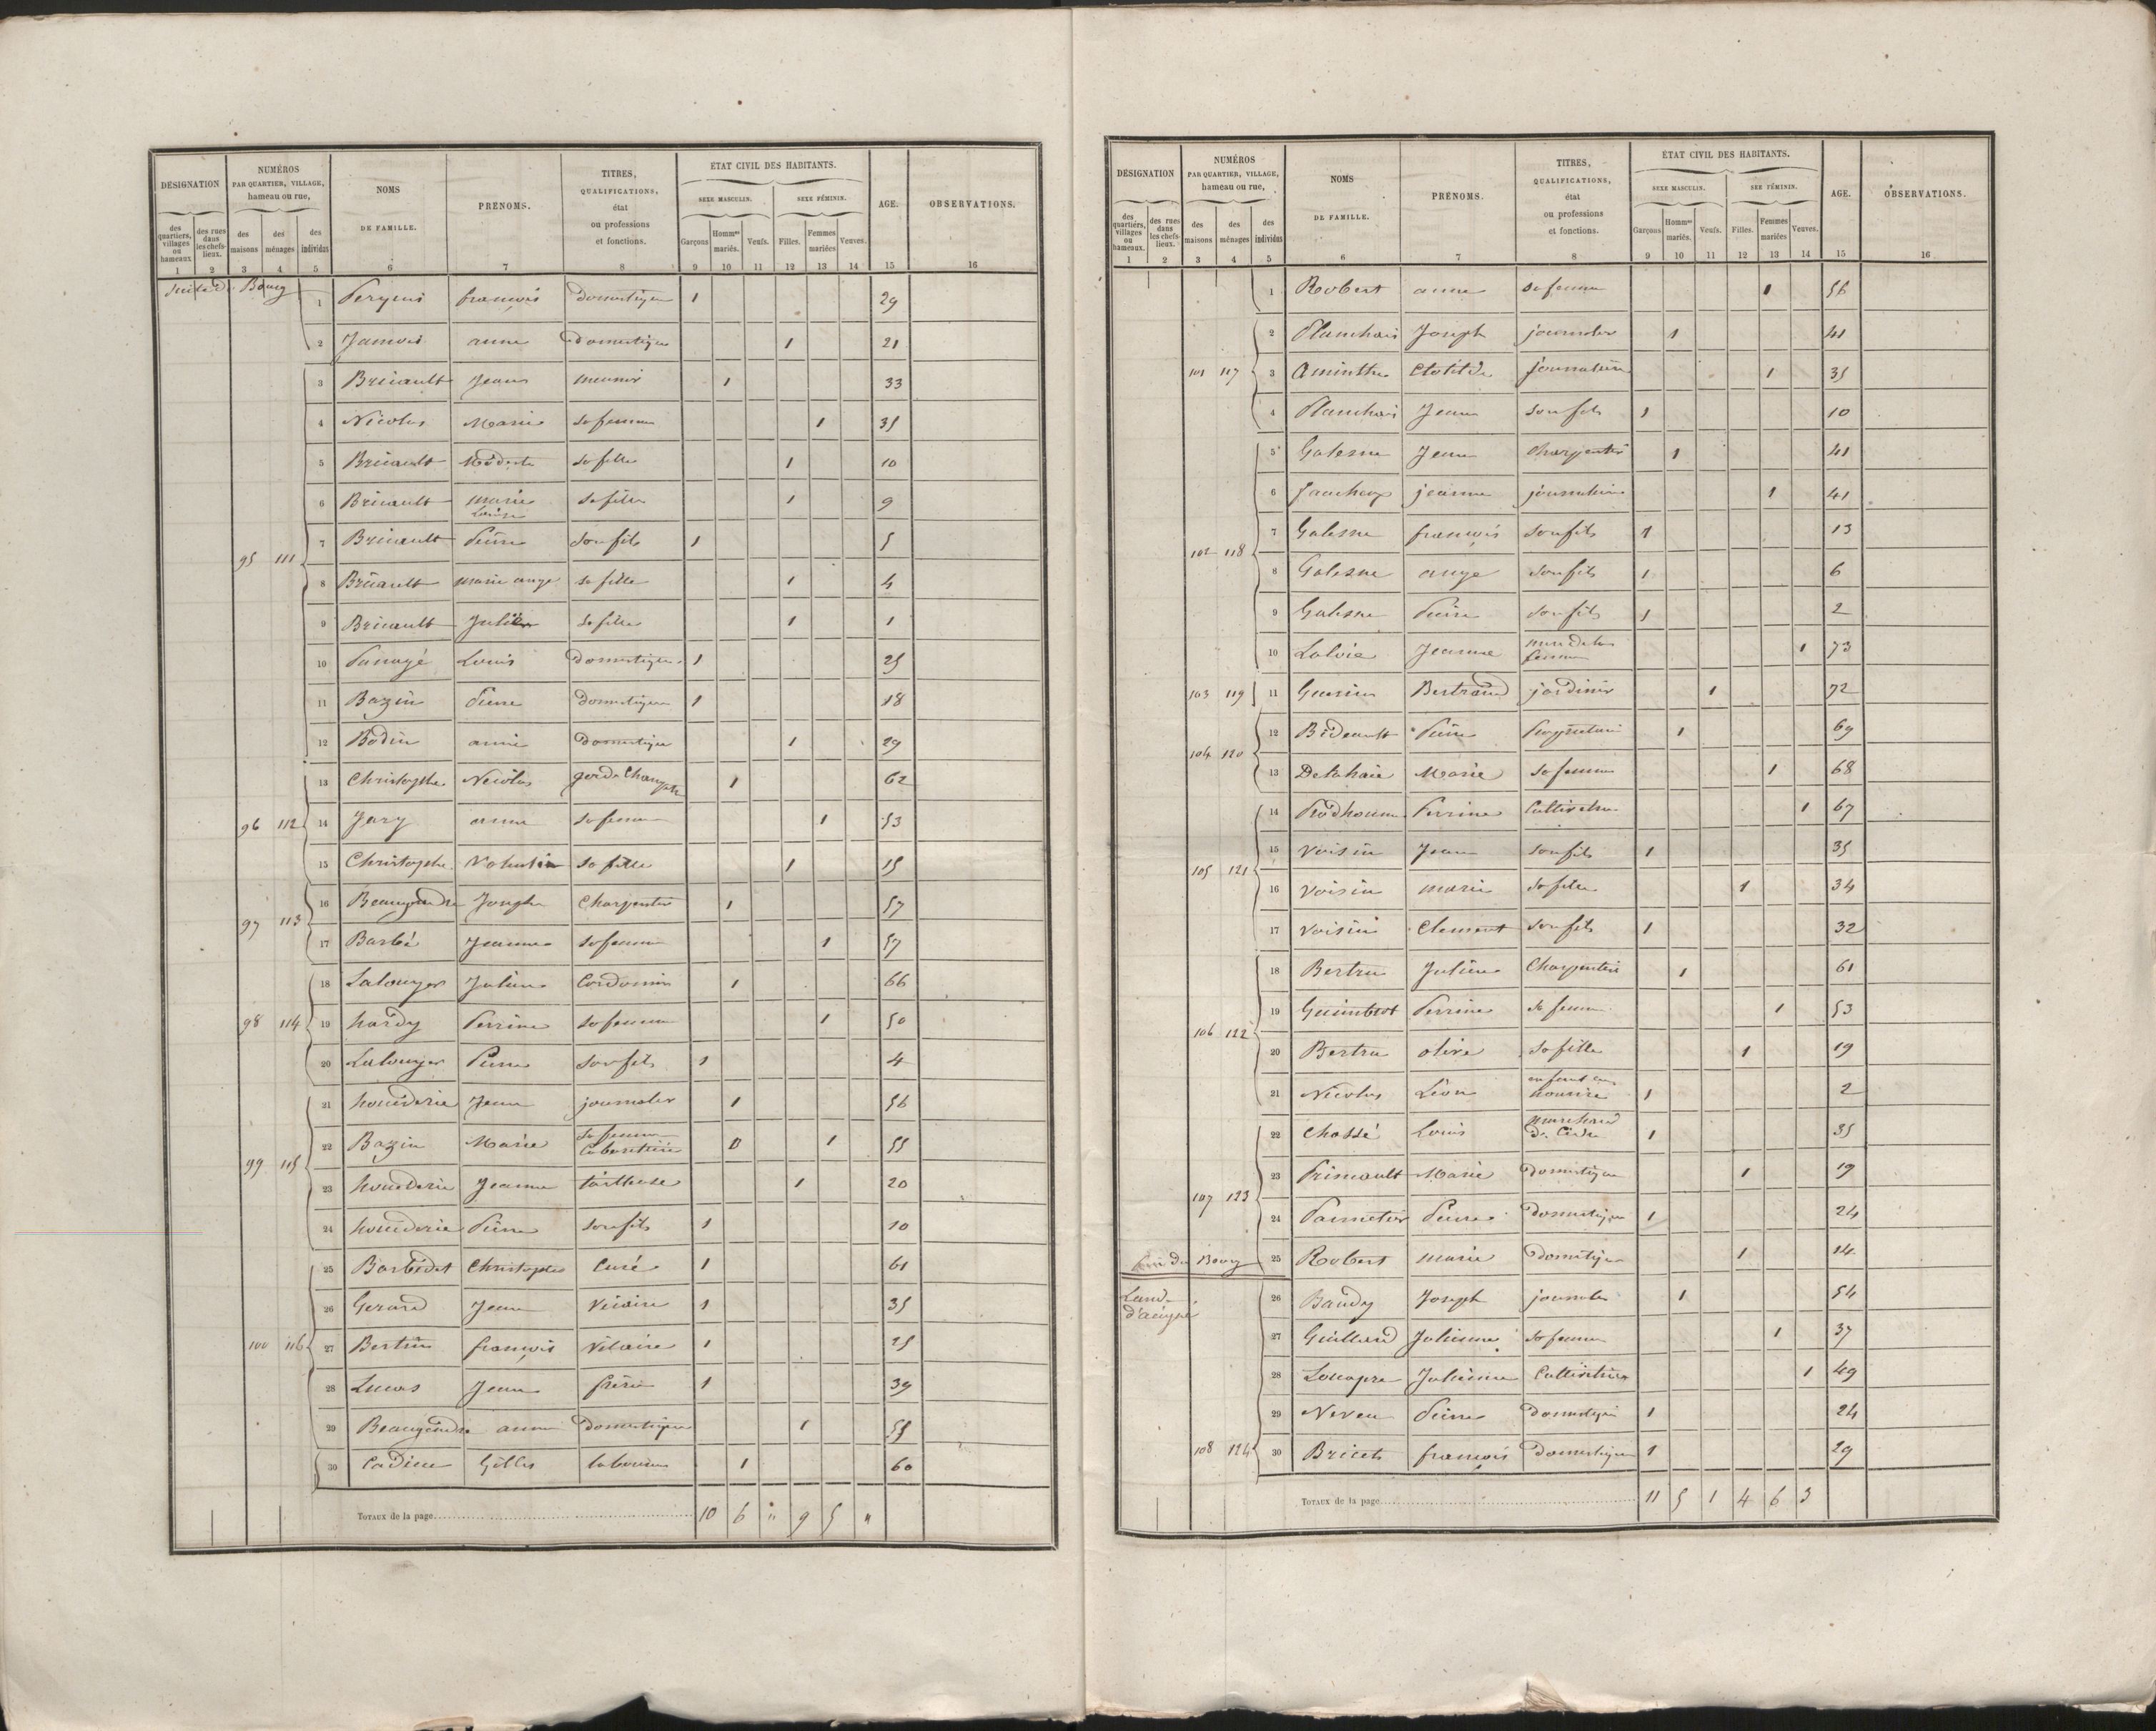 DÉSIGNATION
NUMÉROS
PAR QUARTIER, VILLAGE,
hameau ou rue,
NOMS
DE FAMILLE.
PRÉNOMS.
TITRES,
QUALIFICATIONS,
état
ou professions
et fonctions.
ÉTAT CIVIL DES HABITANTS.
SEXE MASCULIN. SEXE FÉMININ.
AGE.
OBSERVATIONS.
des quartiers, villages ou hameaux
des rues dans les chefs-lieux.
des maisons
des ménages
des individus
Garçons
Hommes mariés.
Veufs.
Filles.
Femmes mariées
Veuves.
1 2 3 4 5 6 7 8 9 10 11 12 13 14 15 16
Bourg
1 françois domestique 1 29
2 Jamois anne domestique 1 21
3 Briault Jean meunier 1 33
4 Nicolas Marie sa femme 1 35
5 Briault Modeste sa fille 1 10
6 Briault marie Louise sa fille 1 9
95 111
7 Briault Pierre son fils 1 5
8 Briault marie ange sa fille 1 4
9 Briault sa fille 1 1
10 Louis domestique 1 25
11 Bazin Pierre domestique 1 18
12 Bodin anne domestique 1 29
13 Christophe Nicolas garde Champêtre 1 62
96 112 14 Jary anne sa femme 1 53
15 Christophe sa fille 1 15
97 113
16 Beaugendre Joseph Charpentier 1 57
17 Barbé Jeanne sa femme 1 57
18 Lalouyer Julien Cordonnier 1 66
98 114 19 hardy Perrine sa femme 1 50
20 Lalouyer Pierre son fils 1 4
21 houiderie Jean journalier 1 56
22 Bazin Marie sa femme 0 1 55
99 115
23 houiderie Jeanne tailleuse 1 20
24 houiderie Pierre son fils 1 10
25 Barbedet Christophe Curé 1 61
26 Gerard Jean Vicaire 1 35
100 116 27 Bertin françois Vicaire 1 25
28 Lucas Jean 1 39
29 Beaugendre anne Domestique 1 55
30 Cadieu Gilles laboureur 1 60
TOTAUX de la page 10 6 " 9 5 "
DÉSIGNATION
NUMÉROS
PAR QUARTIER, VILLAGE,
hameau ou rue,
NOMS
DE FAMILLE.
PRÉNOMS.
TITRES,
QUALIFICATIONS,
état
ou professions
et fonctions.
ÉTAT CIVIL DES HABITANTS.
SEXE MASCULIN. SEXE FÉMININ.
AGE.
OBSERVATIONS.
des quartiers, villages ou hameaux.
des rues dans les chefs-lieux.
des maisons
des ménages
des individus
Garçons
Hommes mariés.
Veufs.
Filles.
Femmes mariées
Veuves.
1 2 3 4 5 6 7 8 9 10 11 12 13 14 15 16
1 Robert anne sa femme 1 56
2 Planchais Joseph journalier 1 41
101 117 3 Aminthe Clotilde journalière 1 35
4 Planchais Jean son fils 1 10
5 Galesne Jean Charpentier 1 41
6 jeanne journalière 1 41
7 Galesne françois son fils 1 13
102 118
8 Galesne ange son fils 1 6
9 Galesne Pierre son fils 1 2
10 Laloie Jeanne mère de la femme 1 73
103 119 11 Guerin Bertrand jardinier 1 72
12 Bedeault Pierre Propriétaire 1 69
104 120
13 Delahaie Marie sa femme 1 68
14 Prodhomme Perrine Cultivatrice 1 67
15 Voisin Jean son fils 1 35
105 121
16 Voisin marie sa fille 1 34
17 Voisin Clement son fils 1 32
18 Bertru Julien Charpentier 1 61
19 Guimblot Perrine sa femme 1 53
106 122
20 Bertru olive sa fille 1 19
21 Nicolas Léon enfant en nourrice 1 2
22 Chassé Louis marchand de Cidre 1 35
23 Primault Marie Domestique 1 19
107 123
24 Parmetier Pierre Domestique 1 24
fin du Bourg 25 Robert marie Domestique 1 14
26 Baudy Joseph journalier 1 54
27 Guillard Julienne sa femme 1 37
28 Louapre Julienne Cultivatrice 1 49
29 Neveu Pierre Domestique 1 24
108 124 30 Bricet françois Domestique 1 29
TOTAUX de la page 11 5 1 4 6 3